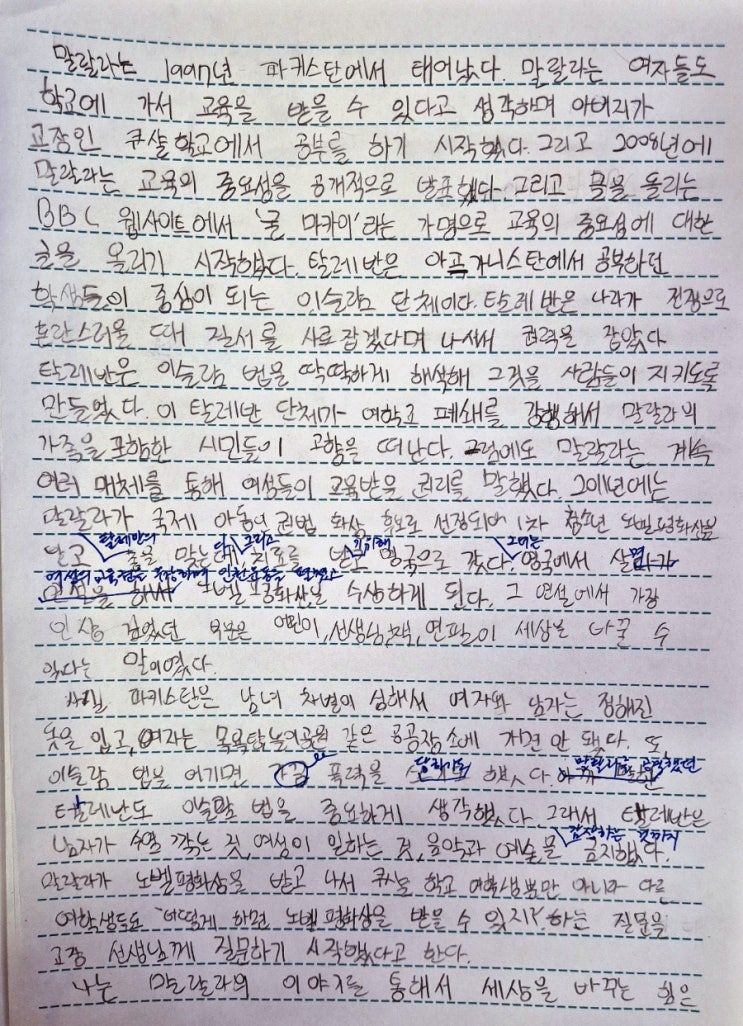 말랄라는 1997년 파키스탄에서 태어났다. 말랄라는 여자들도
학교에 가서 교육을 받을 수 있다고 생각하며 아버지가
교장인 쿠샬학교에서 공부를 하기 시작했다. 그리고 2008년에
말랄라는 교육의 중요성을 공개적으로 발표했다. 그리고 글을 올리는
BBC 웹사이트에서 '굴 마카이'라는 가명으로 교육의 중요성에 대한
글을 올리기 시작했다. 탈레반은 아프가니스탄에서 공부하던
학생들이 중심이 되는 이슬람 단체이다. 탈레반은 나라가 전쟁으로
혼란스러울 때 질서를 바로잡겠다며 나서서 권력을 잡았다
탈레반은 이슬람 법을 딱딱하게 해석해 그것을 사람들이 지키도록
만들었다. 이 탈레반 단체가 여학교 폐쇄를 강행해서 말랄라의
가족을 포함한 시민들이 고향을 떠난다. 그럼에도 말랄라는 계속
여러 매체를 통해 여성들이 교육받을 권리를 말했다. 2011년에는
말랄라가 국제 아동의 권법 화상 후보로 선정되어 1차 청소년 노벨평화상을
탈레반의 다 그리고 위해 그녀는
받고 총을 맞는데 치료를 받고 영국으로 갔다. 영국에서 살
여성의 교육권을 주장하며
연설을 해서 노벨 평화상을 수상하게 된다. 그 연설에서 가장
인상 깊었던 부분은 어린이, 선생님, 책, 연필이 세상을 바꿀 수
있다는 말이였다.
파키스탄은 남녀 차별이 심해서 여자와 남자는 정해진
옷을 입고, 여자는 목욕탕, 놀이공원 같은 공공장소에 가면 안 됐다. 또
이슬람 법을 어기면 가끔 폭력을 당하기도 했다. 말랄라를 공격했던
탈레반도 이슬람 법을 중요하게 생각했다. 그래서 탈레반은
감상하는 것까지
남자가 수염 깎는 것, 여성이 일하는 것, 음악과 예술을 금지했다.
말랄라가 노벨평화상을 받고 나서 쿠샬 학교 여학생뿐만 아니라 다른
여학생들도 '어떻게 하면 노벨 평화상을 받을 수 있지?' 하는 질문을
교장 선생님께 질문하기 시작했다고 한다.
나는 말랄라의 이야기를 통해서 세상을 바꾸는 힘은